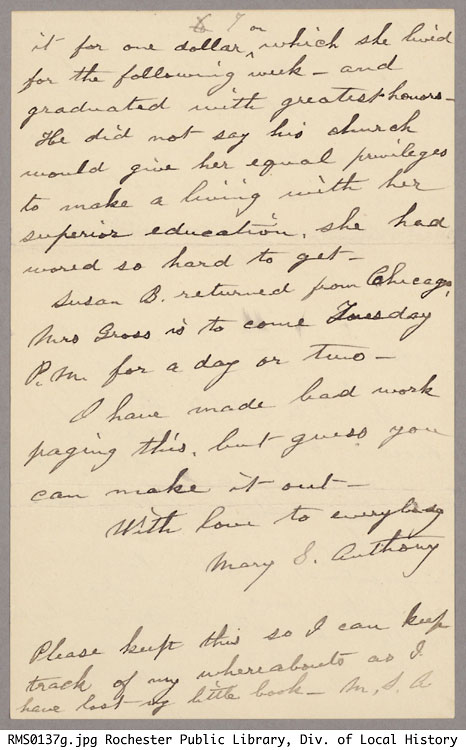 6 7
on
it for one dollar, which she lived
for the following week — and
graduated with greatest honors —
He did not say his church
would give her equal privileges
to make a living with her
superior education, she had
wored so hard to get —
Susan B. returned from Chicago,
Mrs Gross is to come Tuesday
P.M. for a day or two —
I have made bad work
paging this, but guess you
can make it out —
With love to everybody
Mary S. Anthony
Please keep this so I can keep
track of my whereabouts as I
have lost my little book — M. S. A
RMS0137g.jpg Rochester Public Library, Div. of Local History